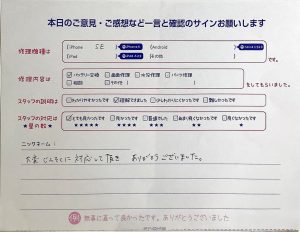 本日のご意見・ご感想など一言と確認のサインお願いします
修理機種は
iPhone SE
Android
iPod
iPad
その他
です。
修理内容は
バッテリー交換 画面修理 水没修理 パーツ修理
その他
をしてもらいました。
スタッフの説明は
わかりやすかったです 理解できました 難しかったです
スタッフの対応は
★星の数★
とても良かったです 良かったです 普通でした 良くなかったです
★★★★★ ★★★★ ★★★ ★★ ★
ニックネーム:
大変 じんそくに 対応して頂き ありがとうございました。
無事に直って良かったです。ありがとうございました